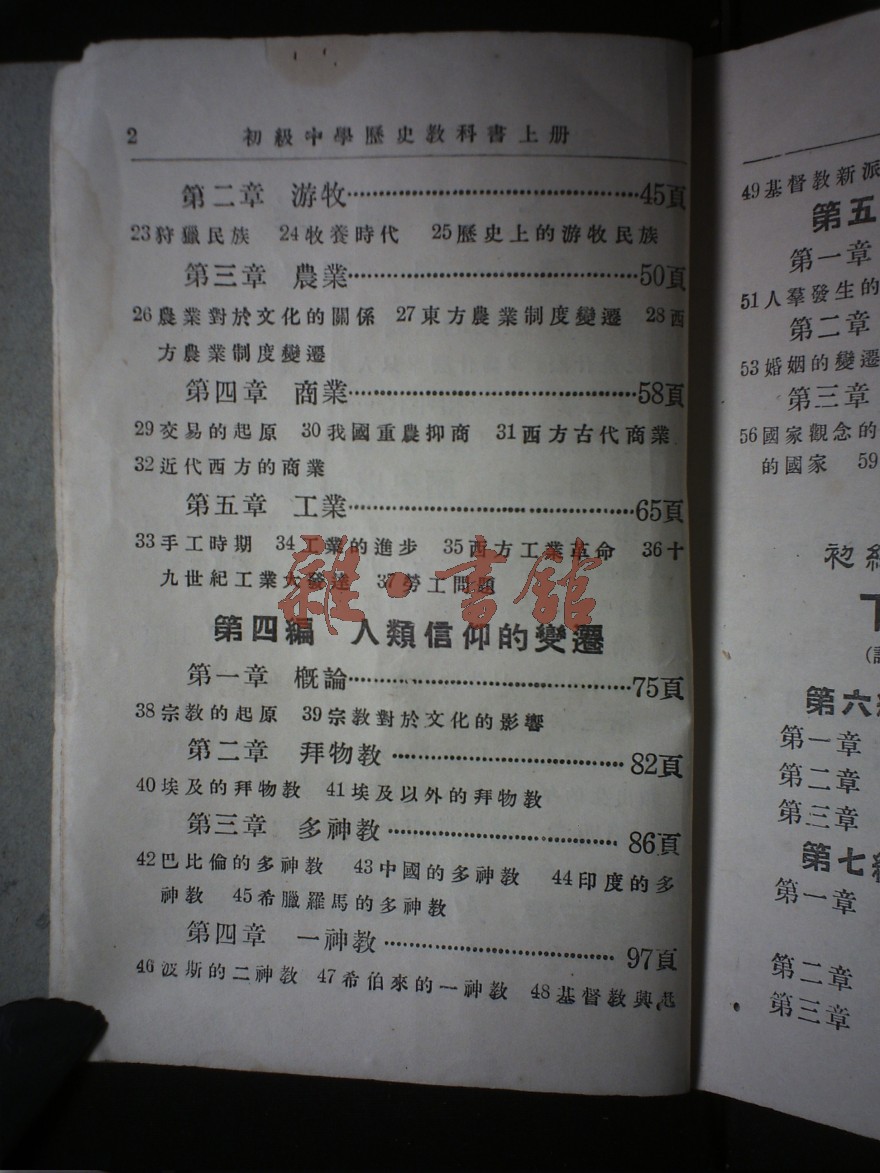 2 初級中學歷史教科書上册
第二章 游牧……45頁
23狩獵民族 24牧養時代 25歷史上的游牧民族
第三章 農業……50頁
26農業對於文化的關係 27東方農業制度變遷 28西
方農業制度變遷
第四章 商業……58頁
29交易的起原 30我國重農抑商 31西方古代商業
32近代西方的商業
第五章 工業……65頁
33手工時期 34工業的進步 35西方工業革命 36十
九世紀工業大發達 37勞工問題
雜·書館
第四編 人類信仰的變遷
第一章 概論……75頁
38宗教的起原 39宗教對於文化的影響
第二章 拜物教……82頁
40埃及的拜物教 41埃及以外的拜物教
第三章 多神教……86頁
42巴比倫的多神教 43中國的多神教 44印度的多
神教 45希臘羅馬的多神教
第四章 一神教……97頁
46波斯的二神教 47希伯來的一神教 48基督教興起
49基督教新派
第五
第一章
51人羣發生的
第二章
53婚姻的變遷
第三章
56國家觀念的
的國家 59
初
第六
第一章
第二章
第三章
第七
第一章
第二章
第三章